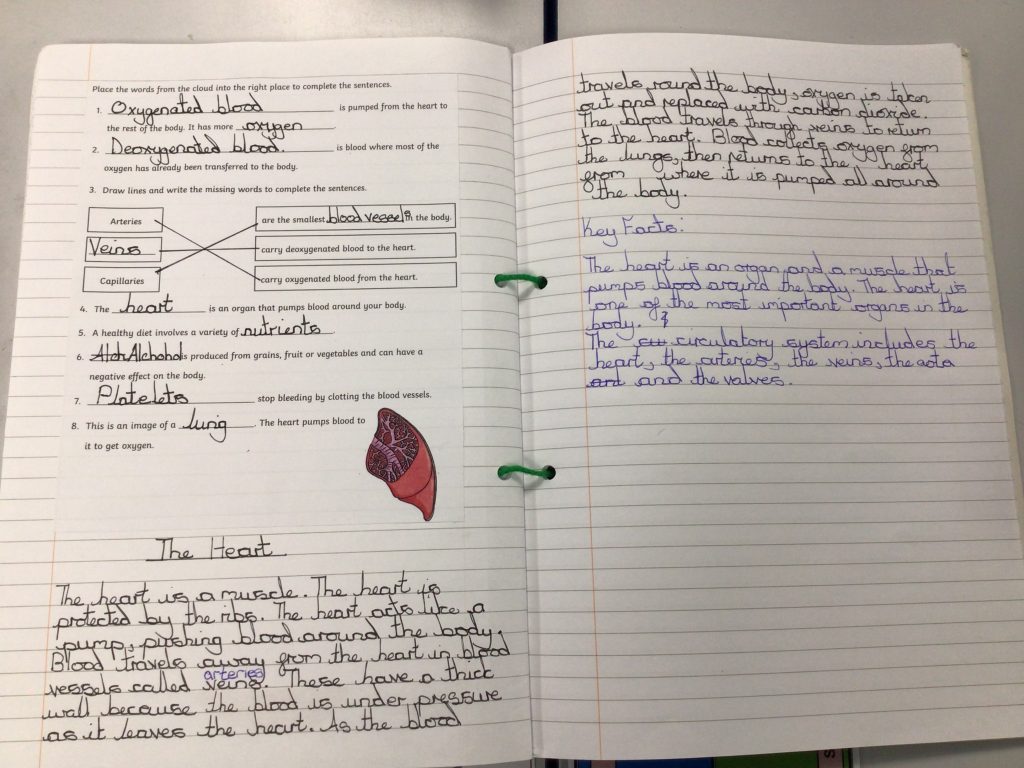 Place the words from the cloud into the right place to complete the sentences.
1. Oxygenated blood is pumped from the heart to
the rest of the body. It has more oxygen
2. Deoxygenated blood. is blood where most of the
oxygen has already been transferred to the body.
3. Draw lines and write the missing words to complete the sentences.
Arteries
are the smallest blood vessels in the body.
Veins
carry deoxygenated blood to the heart.
Capillaries
carry oxygenated blood from the heart.
4. The heart is an organ that pumps blood around your body.
5. A healthy diet involves a variety of nutrients
6. Alch Alchohol is produced from grains, fruit or vegetables and can have a
negative effect on the body.
7. Platelets stop bleeding by clotting the blood vessels.
8. This is an image of a lung. The heart pumps blood to
it to get oxygen.
The Heart
The heart is a muscle. The heart is
protected by the ribs. The heart acts like a
pump, pushing blood around the body.
Blood travels away from the heart in blood
arteries
vessels called veins. These have a thick
wall because the blood is under pressure
as it leaves the heart. As the blood
travels round the body, oxygen is taken
out and replaced with carbon dioxide.
The blood travels through veins to return
to the heart. Blood collects oxygen from
the lungs, then returns to the heart
from where it is pumped all around
the body.
Key Facts:
The heart is an organ and a muscle that
pumps blood around the body. The heart is
one of the most important organs in the
body.
The circulatory system includes the
heart, the arteries, the veins, the aota
and and the valves.